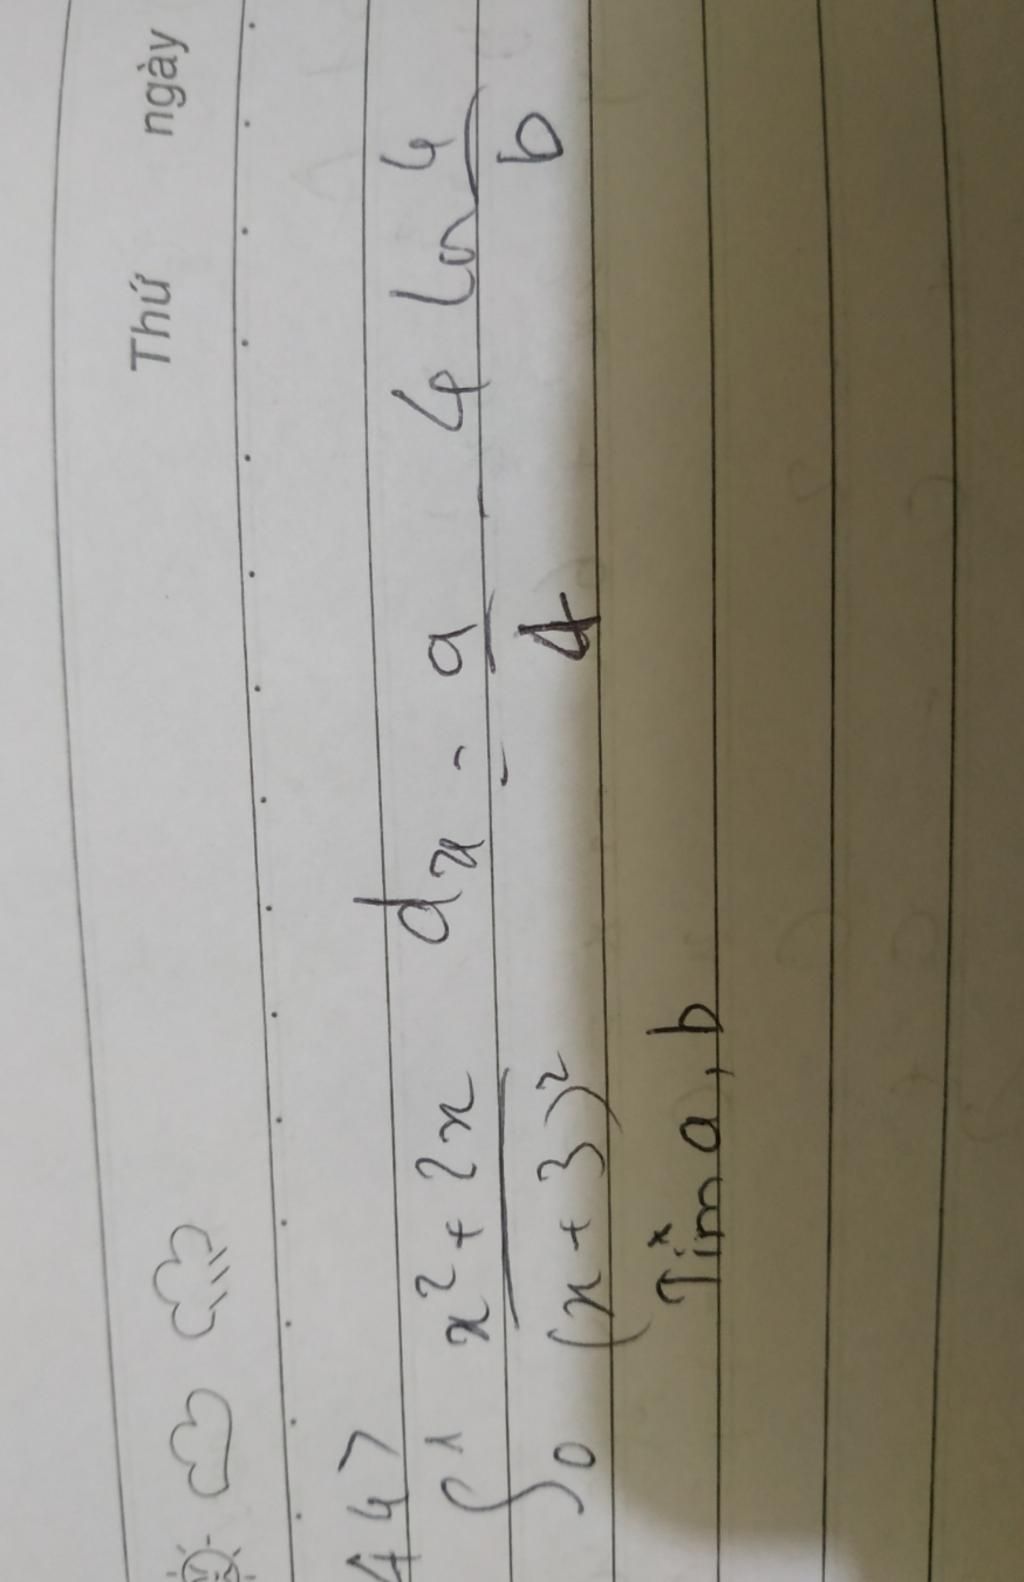 Thứ ngày
14>
∫₀¹ (x² + 2x)/(x + 3)² dx = a/4 - 4 ln 4/b
Tìm a, b